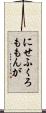 にせふくろ
ももんが